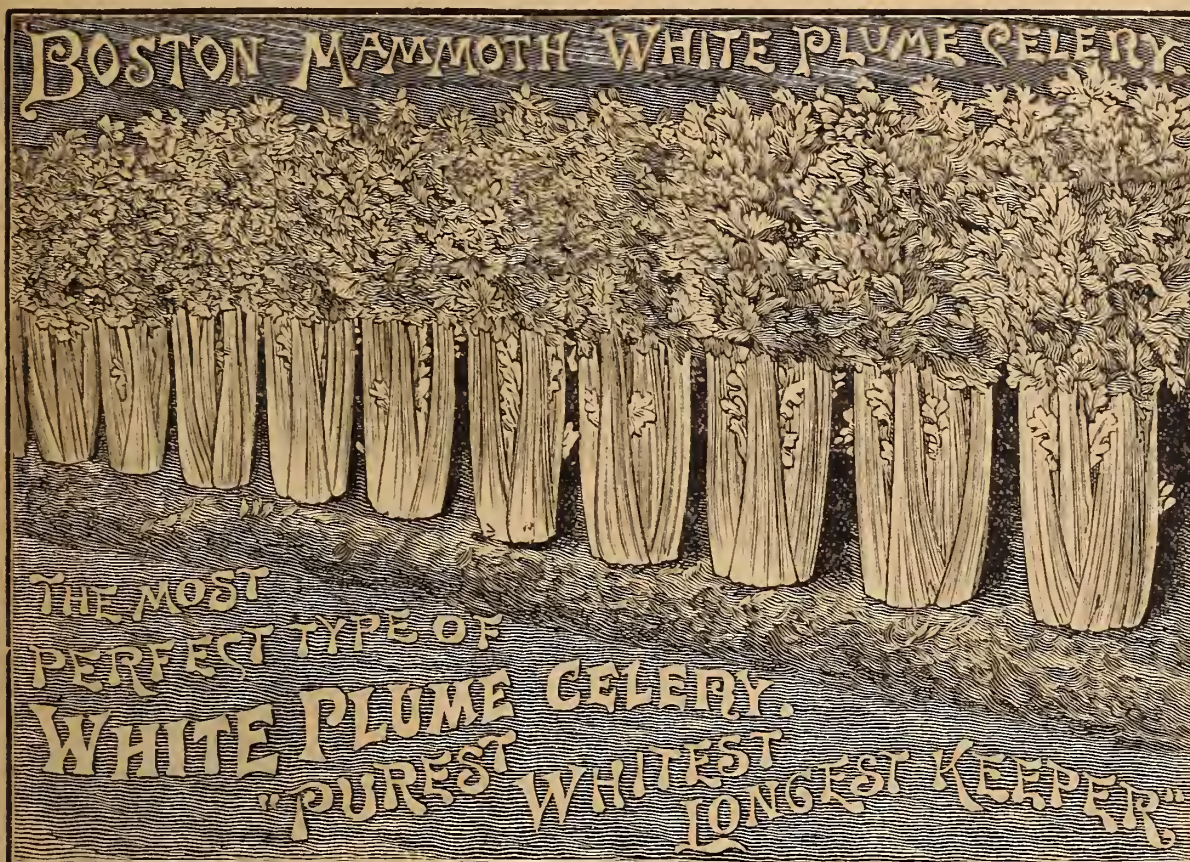 BOSTON MAMMOTH WHITE PLUME CELERY.
THE MOST
PERFECT TYPE OF
WHITE PLUME CELERY.
"PUREST WHITEST
LONGEST KEEPER"